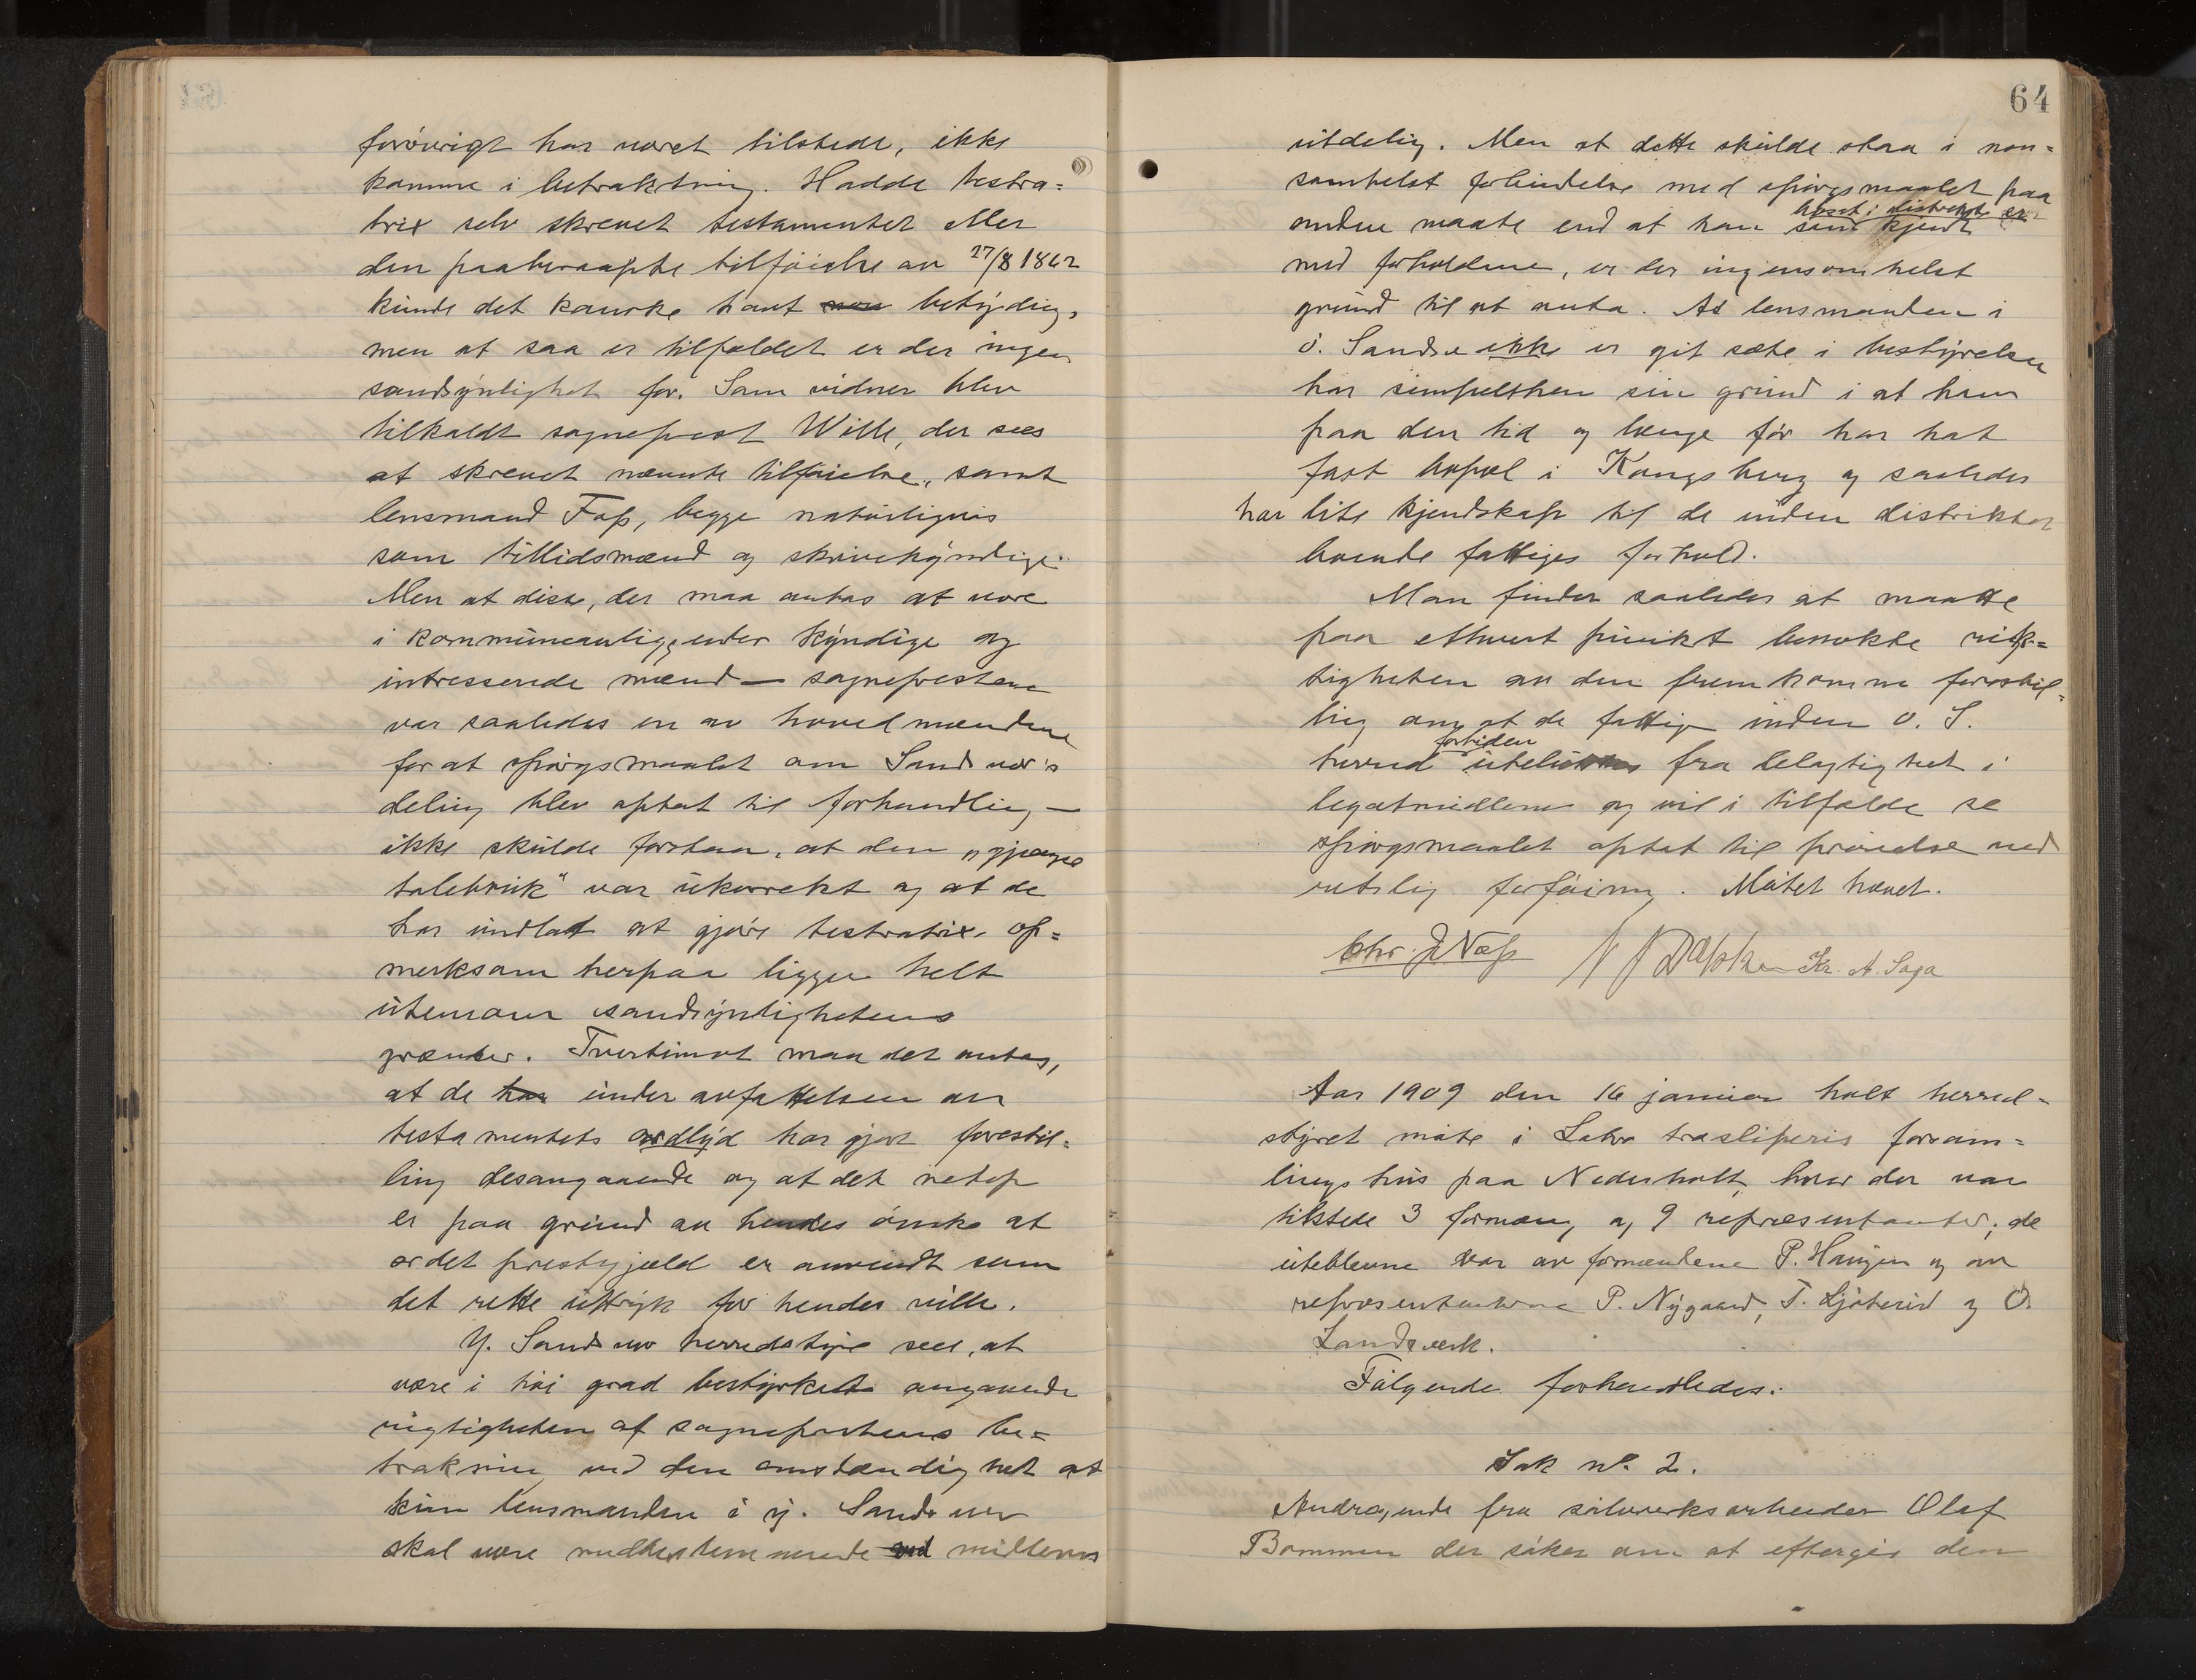 forøvrigt har været tilstede, ikke
komme i betraktning. Hadde testra=
trix selv skrevet testamentet eller
den paaberaapte tilføielse av 27/8 1862
kunde det kanske havt betydning,
men at saa er tilfældet er der ingen
sandsynlighet for. Som vidner blev
tilkaldt sogneprest Wille, der sees
at skrevet nævnte tilføielse, samt
lensmand Fass, begge naturligvis
som tillidsmænd og skrivekyndige.
Men at disse, der maa antas at være
i kommuneanliggender kyndige og
intresserede mænd — sognepresten
var saaledes en av hovedmændene
for at spørgsmaalet om Sandsvær's
deling blev optat til forhandling —
ikke skulde forstaa, at den "gjængse
talebruk" var ukorrekt og at de
har undlatt at gjøre testratrix op=
merksom herpaa ligger helt
utenom sandsynlighetens
grænser. Tvertimot maa det antas,
at de har under avfattelsen av
testamentets ordlyd har gjort forestil=
ling desangaaende og at det netop
er paa grund av hendes ønske at
ordet prestegjeld er anvendt som
det rette uttryk for hendes vilje.
Y. Sandsvær herredstyre sees, at
være i høi grad bestyrket angaaende
rigtigheten af sogneprestens be=
trakning ved den omstændighet at
kun lensmanden i y. Sandsvær
skal være medbestemmende ved midlernes
64
utdeling. Men at dette skulde staa i non=
somhelst forbindelse med spørgsmaalet paa
anden maate end at han bosat i distriktet er
som kjendt
med forholdene, er der ingensomhelst
grund til at anta. At lensmanden i
ø. Sandsv. ikke er git sæte i bestyrelsen
har simpelthen sin grund i at han
paa den tid og længe før har hat
fast bopæl i Kongsberg og saaledes
har lite kjendskap til de inden distriktet
boende fattiges forhold.
Man finder saaledes at maatte
paa ethvert punkt benekte rik=
tigheten av den fremkomne forestil=
ling om at de fattige inden ø. S.
fortiden
herred utelukkes fra delagtighet i
legatmidlerne og vil i tilfælde se
spørgsmaalet optat til prøvelse ved
retslig forføining. Møtet hævet.
Chr. J Næss Kr. A. Saga
Aar 1909 den 16 januar holt herred=
styret møte i Labro træsliperis forsam=
lingshus paa Nedreholt, hvor der var
tilstede 3 formænd og 9 repræsentanter; de
uteblevne var av formændene P. Haugen og av
repræsentanterne P. Nygaard, T. Ljøterud og O.
Landsverk.
Følgende forhandledes:
Sak No. 2.
Andragende fra sølvverksarbeider Olaf
Bommen der søker om at eftergis den